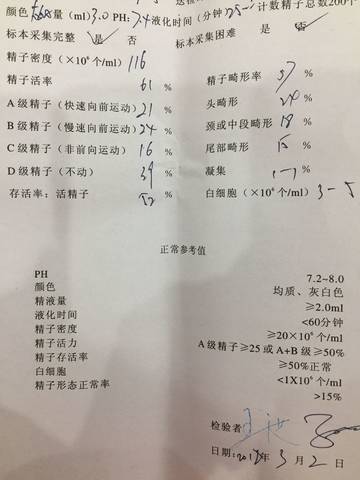 颜色 量(ml)3.0 PH:7.4液化时间(分钟 计数精子总数200个
标本采集完整 是 否 标本采集困难 是 否
精子密度(×10⁶个/ml)116
精子活率 61 % 精子畸形率 37 %
A级精子(快速向前运动)21 % 头畸形 20 %
B级精子(慢速向前运动)24 % 颈或中段畸形 18 %
C级精子(非前向运动)16 % 尾部畸形 %
D级精子(不动)39 % 凝集 (-) %
存活率:活精子 % 白细胞(×10⁶个/ml)3-5
正常参考值
PH 7.2~8.0
颜色 均质、灰白色
精液量 ≥2.0ml
液化时间 <60分钟
精子密度 ≥20×10⁶个/ml
精子活力 A级精子≥25或A+B级≥50%
精子存活率 ≥50%正常
白细胞 <1X10⁶个/ml
精子形态正常率 >15%
检验者
日期: 年3月2日